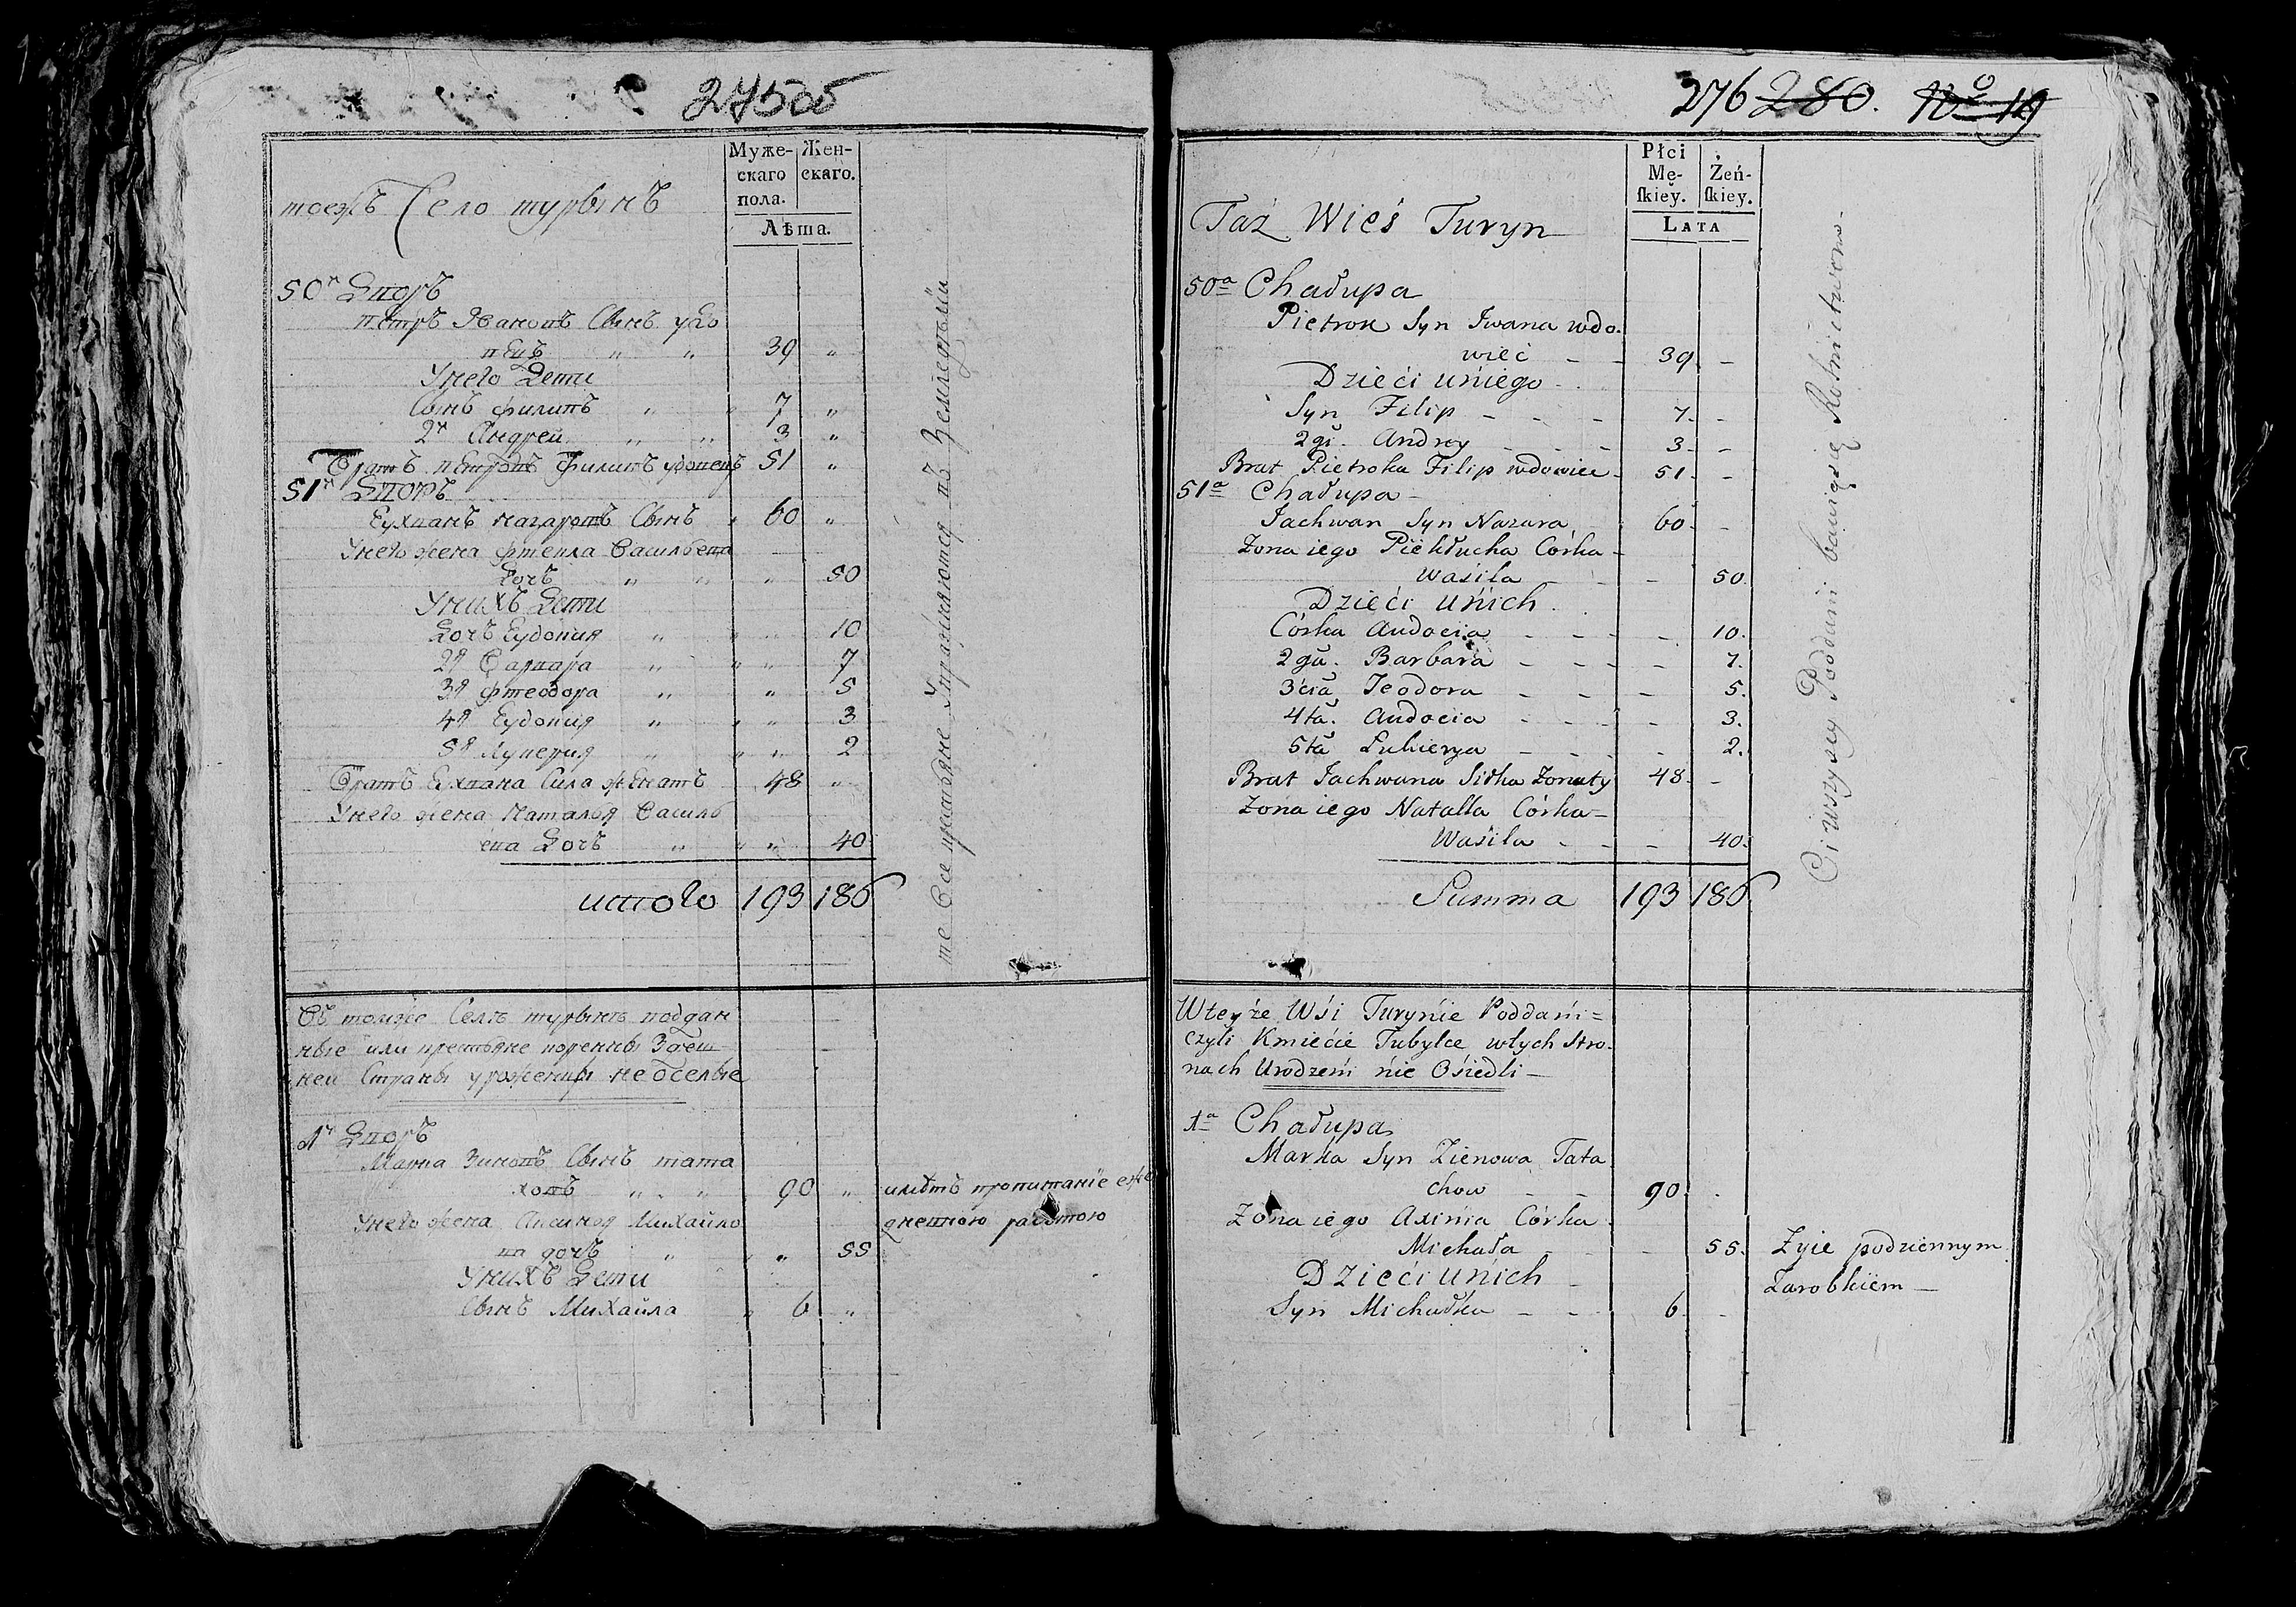 275об
Муже-
скаго
пола.
Жен-
скаго.
Лѣта.
тоежъ Село турынъ
50й Дворъ
петръ Ивановъ Сынъ удо
вецъ " " 39 "
Унего Дети
Сынъ филипъ " " 7 "
2й Андрей " " 3 "
Братъ петровъ Филипъ удовецъ 51 "
51й Дворъ
Еухванъ назаровъ Сынъ " 60 "
Унего жена фтекла Васильева
Дочъ " " " 50
Унихъ Дети
Дочъ Еудокия " " " 10
2я Варвара " " " 7
3я фтеодора " " 5
4я Еудокия " " " 3
5я Лукерия " " " 2
Братъ Еухвана Сила женатъ 48 "
Унего жена Наталья Василь
ева Дочъ " " " 40
итого 193 186
те Все крестьяне Упражняются въ Земледелїи
Въ томже Селѣ турынѣ поддан
ные или крестьяне коренны Здеш
ней Страны уроженцы неоселые
1й Дворъ
Марка Зиновъ Сынъ тата
ховъ " " 90 "
имѣтъ пропитанїе еже
дневною работою
Унего жена Аксиноя Михайло
ва дочъ " " 55
Унихъ Дети
Сынъ Михайла " 6 "
276 280. No 19
Płci
Mę-
skiey.
Żeń-
skiey.
LATA
Taż Wieś Turyn
50a Chałupa
Pietrok Syn Iwana wdo.
wiec - - 39 -
Dzieći uńiego -
Syn Filip - - - 7. -
2gi. Andrey - - - 3. -
Brat Pietroka Filip wdowiec - 51. -
51a Chałupa -
Jachwan Syn Nazara - 60. -
Zona iego Piekłucha Córka -
Waśila - - - 50.
Dzieći uńich.
Córka Audocia - - - - 10.
2ga. Barbara - - - - 7.
3cia Teodora - - - - 5.
4ta. Audocia - - - - 3.
5ta Lukierya - - - - 2.
Brat Jachwana Siłka Zonaty 48. -
Zona iego Natalla Córka -
Waśila - - - 40.
Summa 193 186
Ci wszyscy Poddani bawią się Rolnictwem.
Wteyże Wśi Turyńie Poddańi =
czyli Kmiećie Tubylce wtych Stro.
nach Urodzeńi ńie Ośiedli -
1a Chałupa
Marka Syn Zienowa Tata
chow - - 90. -
Zona iego Axińia Córka -
Michała - - 55.
Zyie podziennym
Zarobkiem -
Dzieći uńich -
Syn Michałka - - 6. -